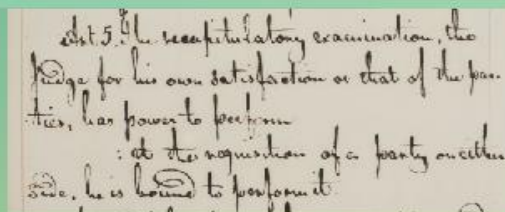 Art 5. The recapitulatory examination, the
Judge for his own satisfaction or that of the par-
ties, has power to perform
: at the requisition of a party on either
side, he is bound to perform it.